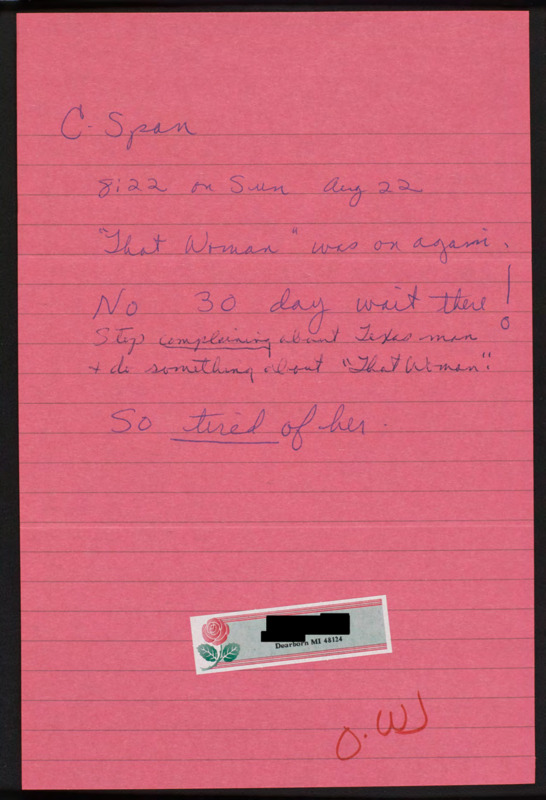 C-Span
8:22 on Sun Aug 22
"That Woman" was on again.
No 30 day wait there!
Stop complaining about Texas man
+ do something about "That Woman".
So tired of her.
Dearborn MI 48124
O.W